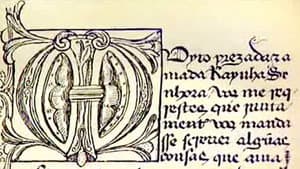 Muyto prezada z a
mada Raynha Se
nhora Vos me req
restes que iunta
ment vos manda
sse screuer algũas
cousas que auia